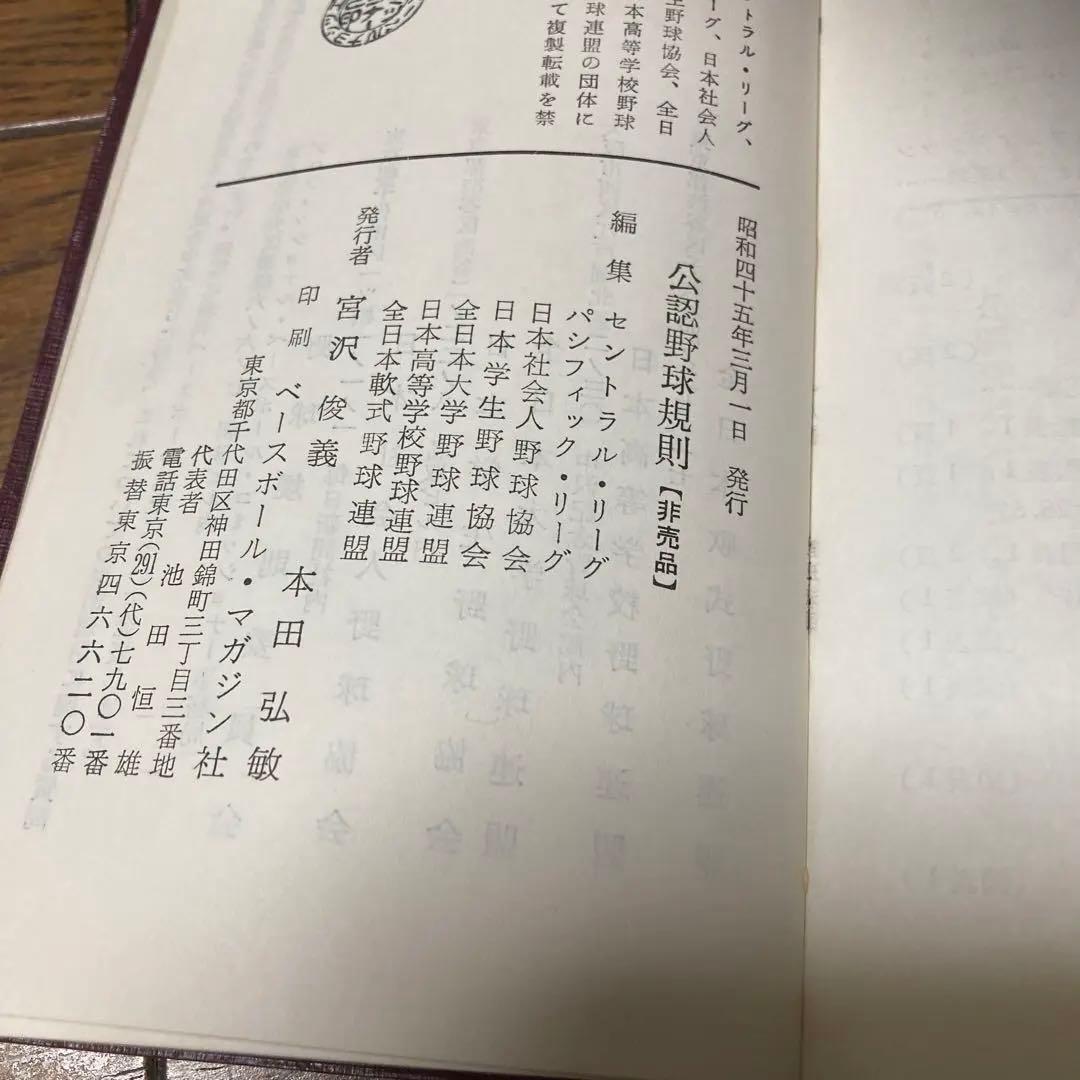 トラル・リーグ、
ーグ、日本社会人
生野球協会、全日
本高等学校野球
球連盟の団体に
て複製転載を禁
昭和四十五年三月一日 発行
公認野球規則【非売品】
編集 セントラル・リーグ
パシフィック・リーグ
日本社会人野球協会
日本学生野球協会
全日本大学野球連盟
日本高等学校野球連盟
全日本軟式野球連盟
発行者 宮沢俊義
本田弘敏
印刷 ベースボール・マガジン社
東京都千代田区神田錦町三丁目三番地
代表者 池田恒雄
電話東京(291)(代)七九〇一番
振替東京四六六二〇番